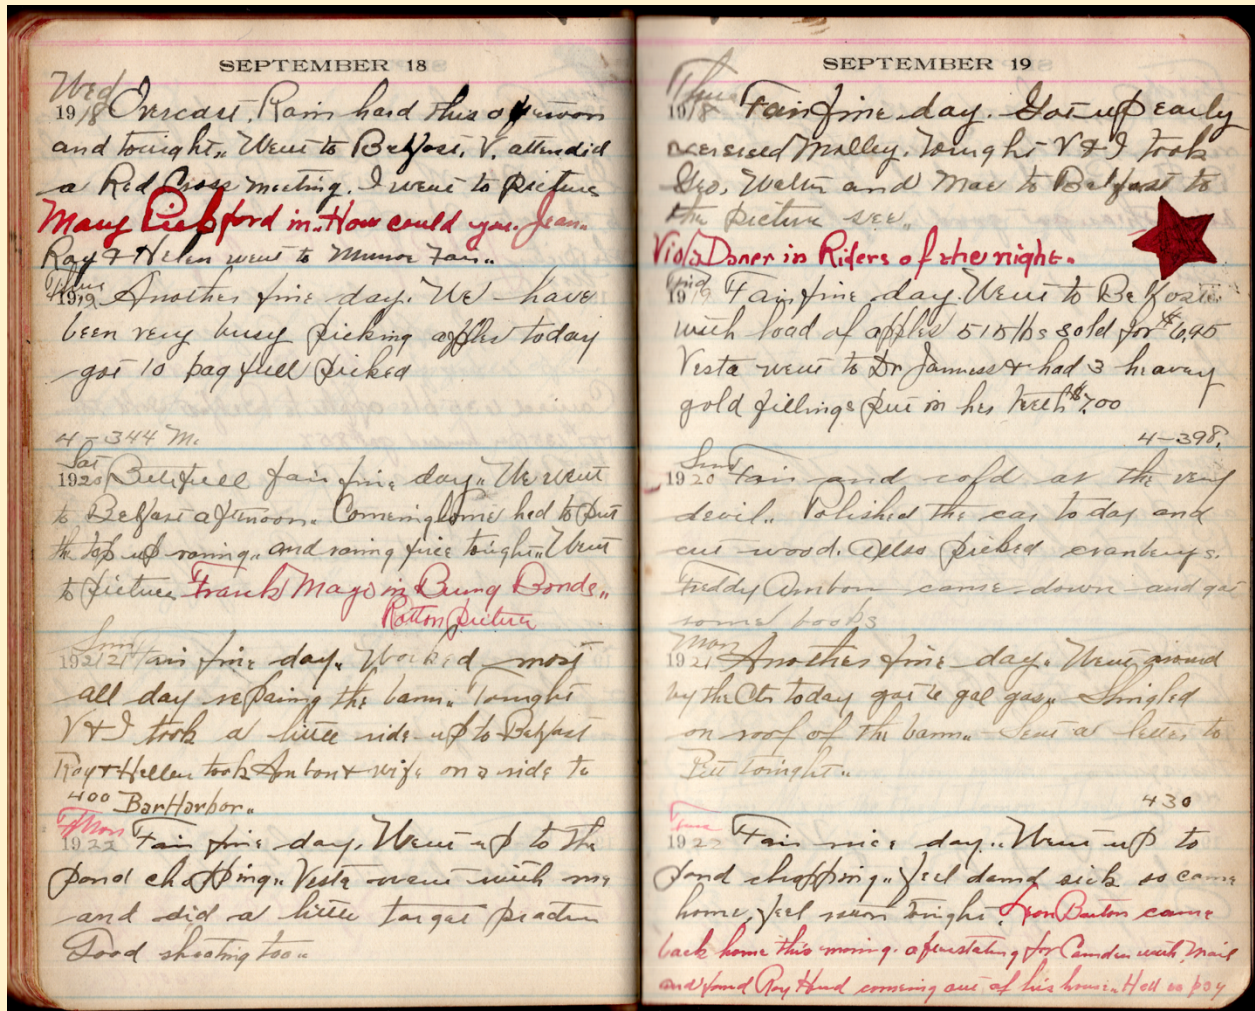 SEPTEMBER 18
Wed
1918 Overcast. Rain hard this afternoon
and tonight.. Went to Belfast. V. attendid
a Red Cross meeting. I went to picture
Mary Pickford in.. How could you. Jean..
Ray & Helen went to Munroe Fair..
Thurs
1919 Another fine day. We have
been very busy picking apples today
got 10 bag full picked
4-344 M.
Sat
1920 Butifull fair fine day.. We went
to Belfast afternoon.. Comeing home had to put
the top up raning.. and raning fine tonight.. Went
to picture Frank Mayo in Burng Bonds..
Rotton picture
1921 Fair fine day.. Worked most
all day repairing the barn.. Tonight
V & I took a little ride up to Belfast
Roy & Hellen took Anbon & wife on a ride to
400 BarHarbor..
1922 Fair fine day. Went up to the
pond chopping.. Vesta went with me
and did a little target practice
Good shooting too..
SEPTEMBER 19
Thurs
1918 Fair fine day. Got up early
exersised Molley. tonight V & I took
Geo. Walter and Mae to Belfast to
the picture see..
Viola Daner in Riders of the night..
Frid
1919 Fair fine day. Went to Belfast
with load of apples 515 lbs sold for $6.95
Vesta went to Dr Janness & had 3 heavey
gold fillings put in her teeth $7.00
4-398.
Sun
1920 Fair and cold as the very
devil.. Polished the car today and
cut wood. Also picked cranberys.
Freddy Anbon came down and got
some books
Mon
1921 Another fine day. Went around
by the Ctr today got gal gas.. Shingled
on roof of the barn.. Sent a letter to
tonight..
430
Tues
1922 Fair nice day.. Went up to
pond chopping.. feel damd sick so came
home. feel tonight. Leon Barton came
back home this morning. after stating for Camden with mail
and found Roy Hurd comeing out of his house.. Hell to pay